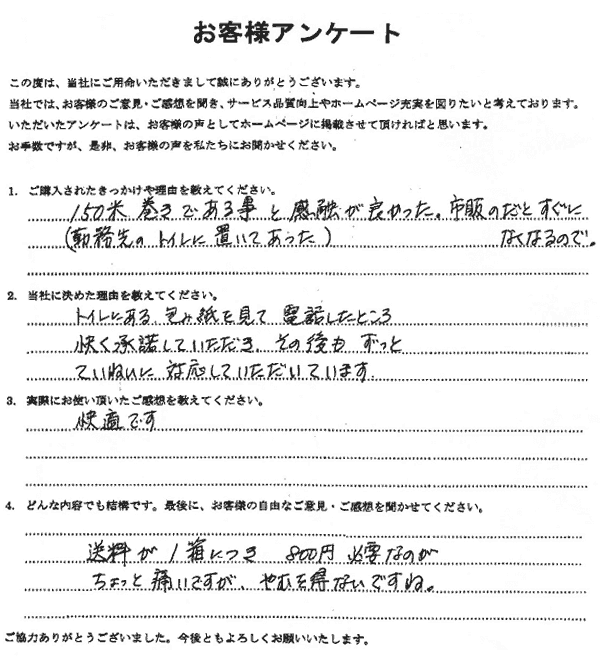 お客様アンケート
この度は、当社にご用命いただきまして誠にありがとうございます。
当社では、お客様のご意見・ご感想を聞き、サービス品質向上やホームページ充実を図りたいと考えております。
いただいたアンケートは、お客様の声としてホームページに掲載させて頂ければと思います。
お手数ですが、是非、お客様の声を私たちにお聞かせください。
1. ご購入されたきっかけや理由を教えてください。
150米 巻きである事と感融が良かった。市販のだとすぐに
(勤務先のトイレに置いてあった) なくなるので。
2. 当社に決めた理由を教えてください。
トイレにある 包み紙を見て 電話したところ
快く承諾していただき、その後も ずっと
ていねいに 対応していただいています.
3. 実際にお使い頂いたご感想を教えてください。
快適です
4. どんな内容でも結構です。最後に、お客様の自由なご意見・ご感想を聞かせてください。
送料が1箱につき 800円 必要なのが
ちょっと痛いですが、やむを得ないですね。
ご協力ありがとうございました。今後ともよろしくお願いいたします。